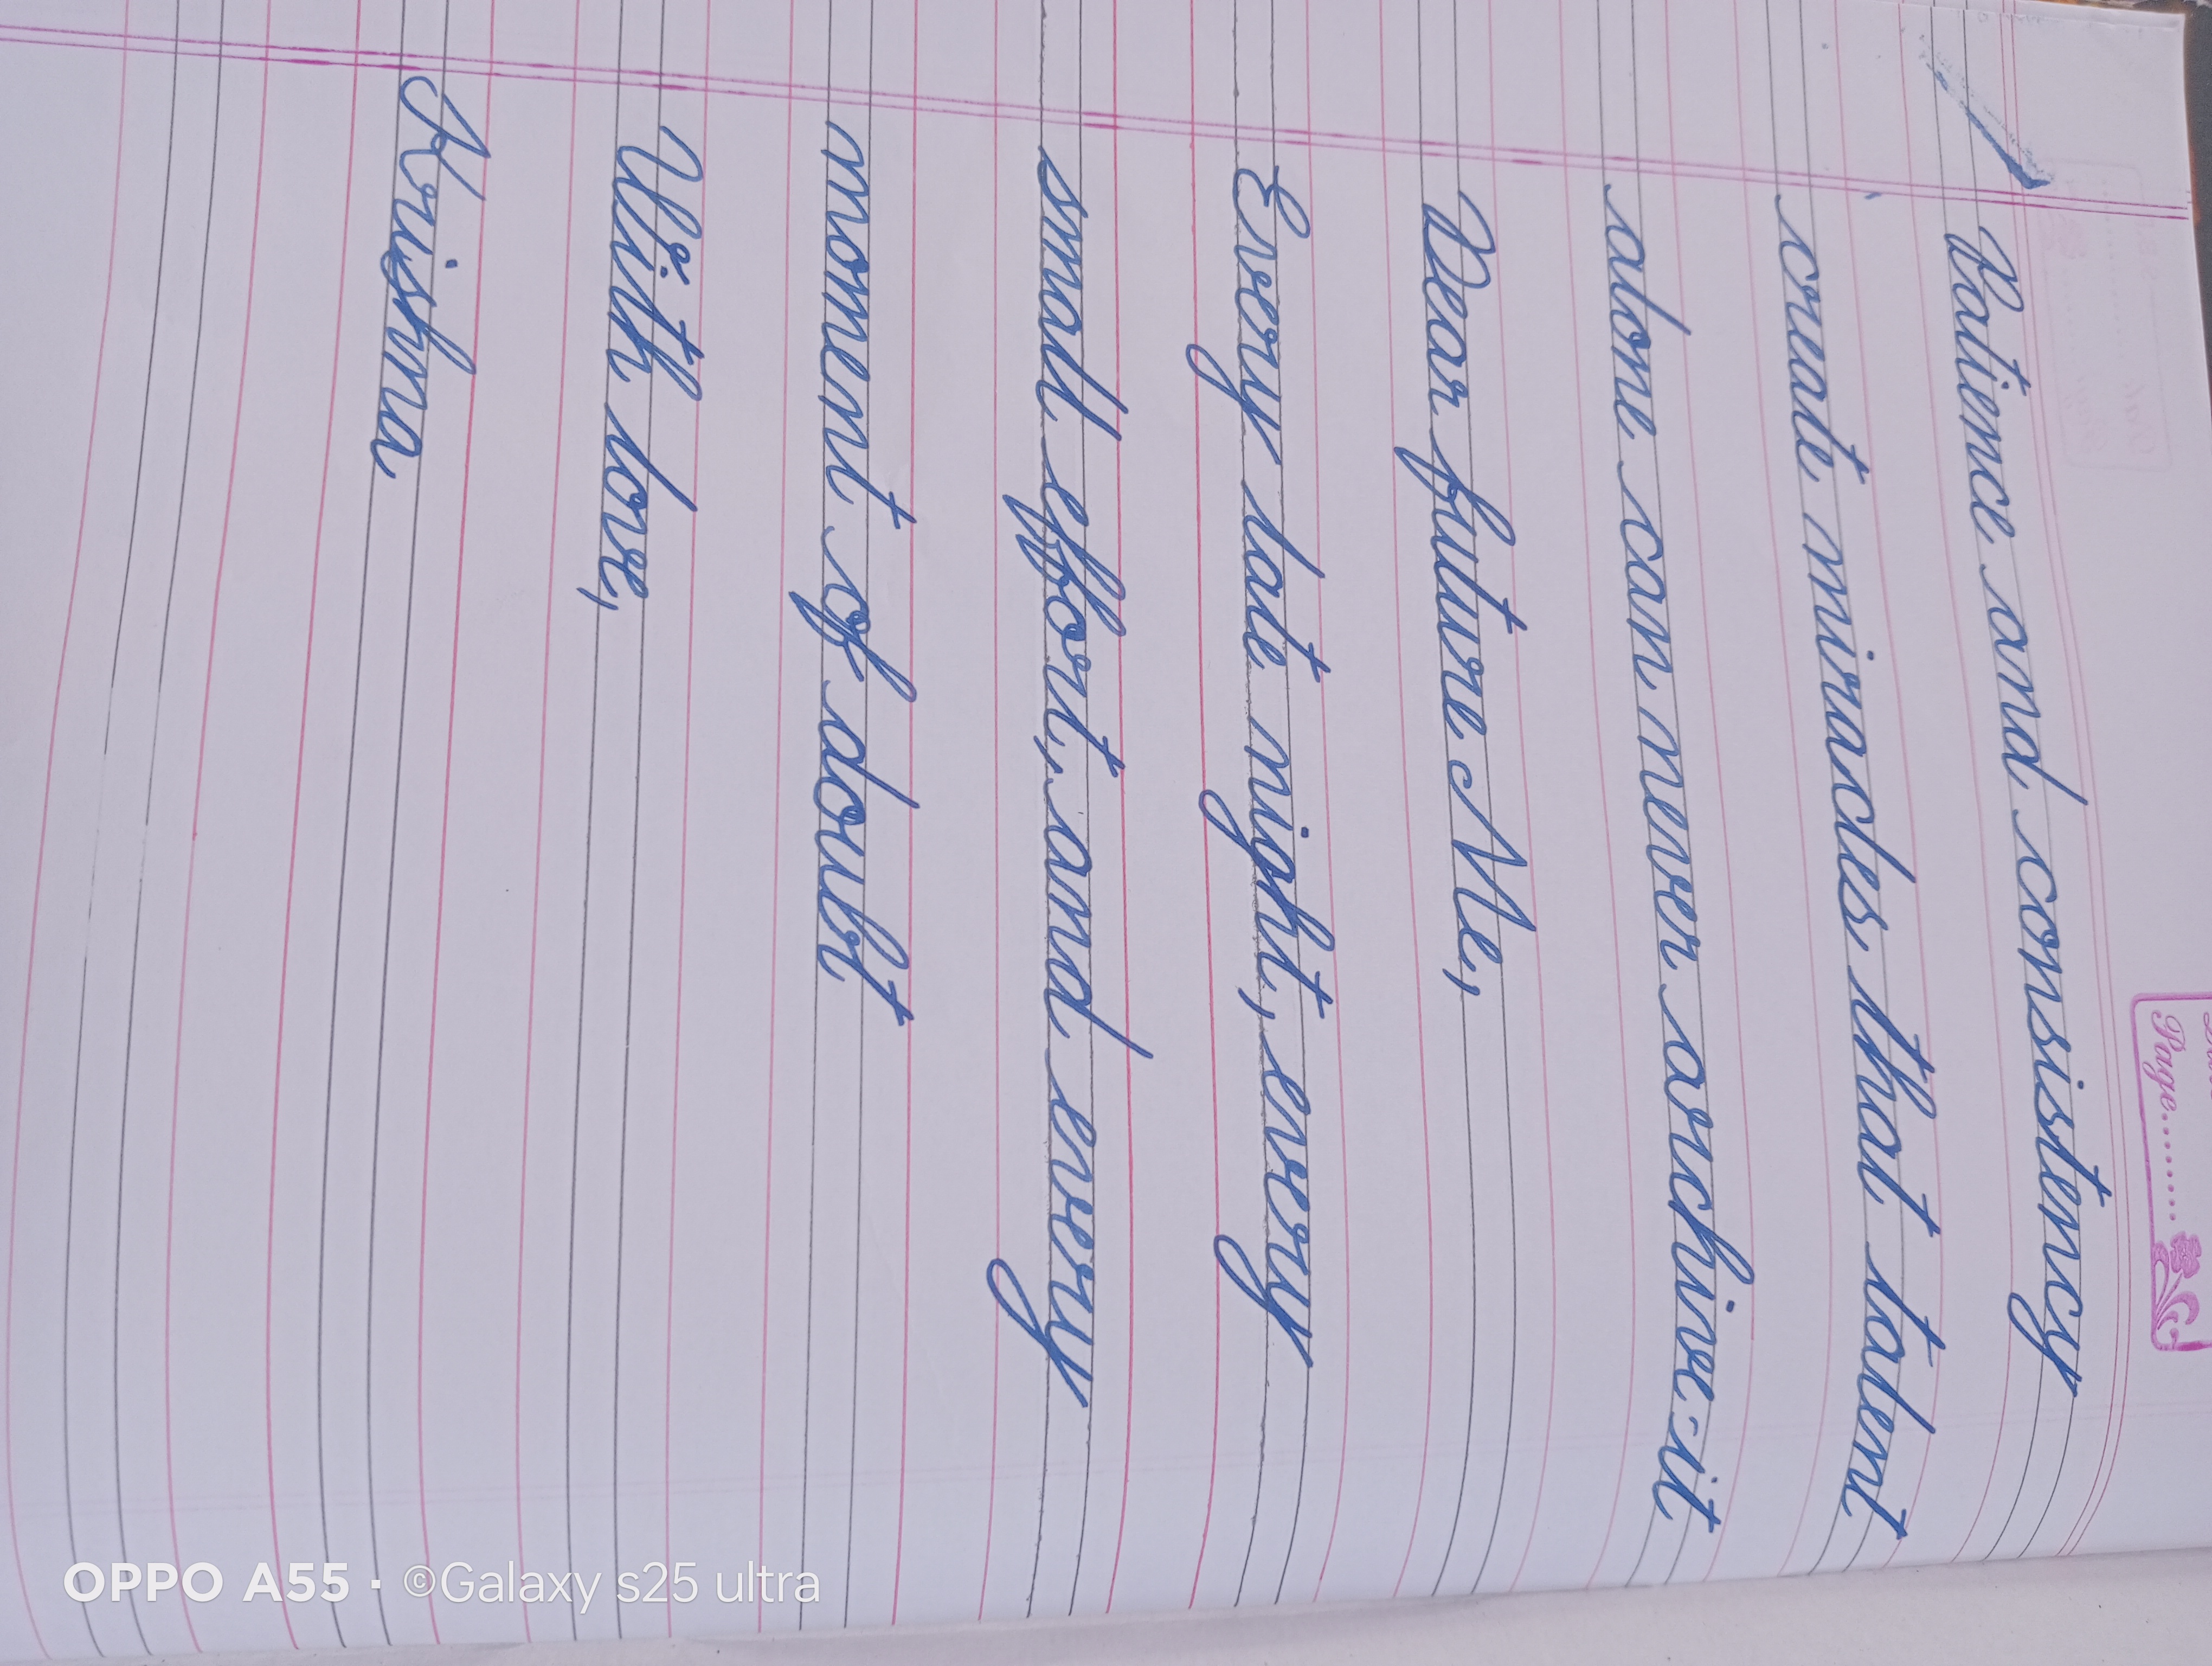 Page........
Patience and consistency
create miracles that talent
alone can never archive-it
Dear future Me,
Every late night, every
small effort, and every
moment of doubt
With love,
Krishna
OPPO A55 · ©Galaxy s25 ultra